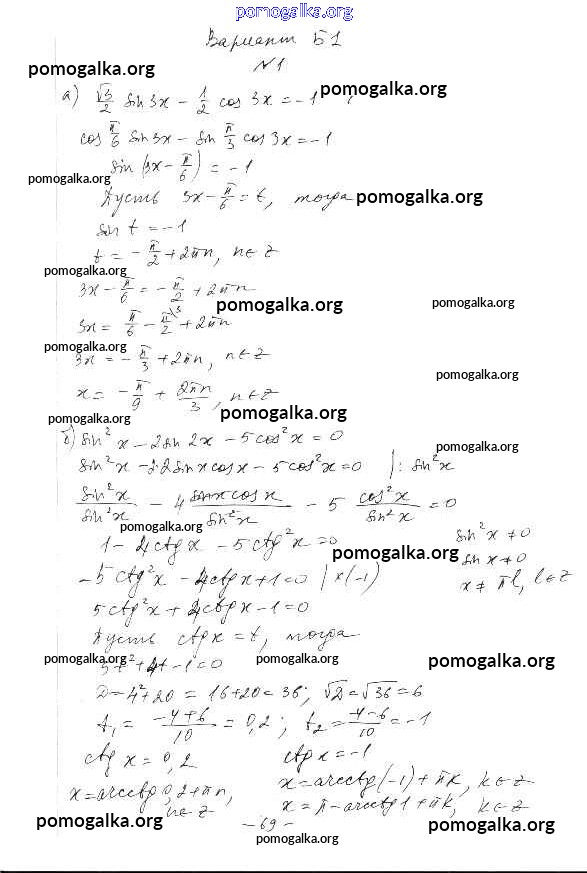 pomogalka.org
Вариант Б1
N1
pomogalka.org
а) √3/2 sin 3x − 1/2 cos 3x = −1 pomogalka.org
cos π/6 sin 3x − sin π/3 cos 3x = −1
sin (3x − π/6) = −1
pomogalka.org
Пусть 3x − π/6 = t, тогда pomogalka.org
sin t = −1
t = − π/2 + 2πn, n∈Z
pomogalka.org
3x − π/6 = − π/2 + 2πn
pomogalka.org pomogalka.org
3x = π/6 − π/2 \3 + 2πn
pomogalka.org
3x = − π/3 + 2πn, n∈Z
pomogalka.org
x = − π/9 + 2πn/3, n∈Z
pomogalka.org pomogalka.org
б) sin² x − 2 sin 2x − 5 cos² x = 0
pomogalka.org
sin² x − 2·2 sin x cos x − 5 cos² x = 0 |: sin² x
sin² x/sin² x − 4 sin x cos x/sin² x − 5 cos² x/sin² x = 0
pomogalka.org
1 − 4 ctg x − 5 ctg² x = 0 sin² x ≠ 0
pomogalka.org
sin x ≠ 0
−5 ctg² x − 4 ctg x + 1 = 0 | ×(−1) x ≠ πl, l∈Z
5 ctg² x + 4 ctg x − 1 = 0
Пусть ctg x = t, тогда
pomogalka.org pomogalka.org pomogalka.org
5t² + 4t − 1 = 0
D = 4² + 20 = 16 + 20 = 36; √D = √36 = 6
t₁ = −4+6/10 = 0,2; t₂ = −4−6/10 = −1
ctg x = 0,2 ctg x = −1
x = arcctg 0,2 + πn, n∈Z x = arcctg (−1) + πk, k∈Z
x = π − arcctg 1 + πk, k∈Z
pomogalka.org − 69 − pomogalka.org
pomogalka.org